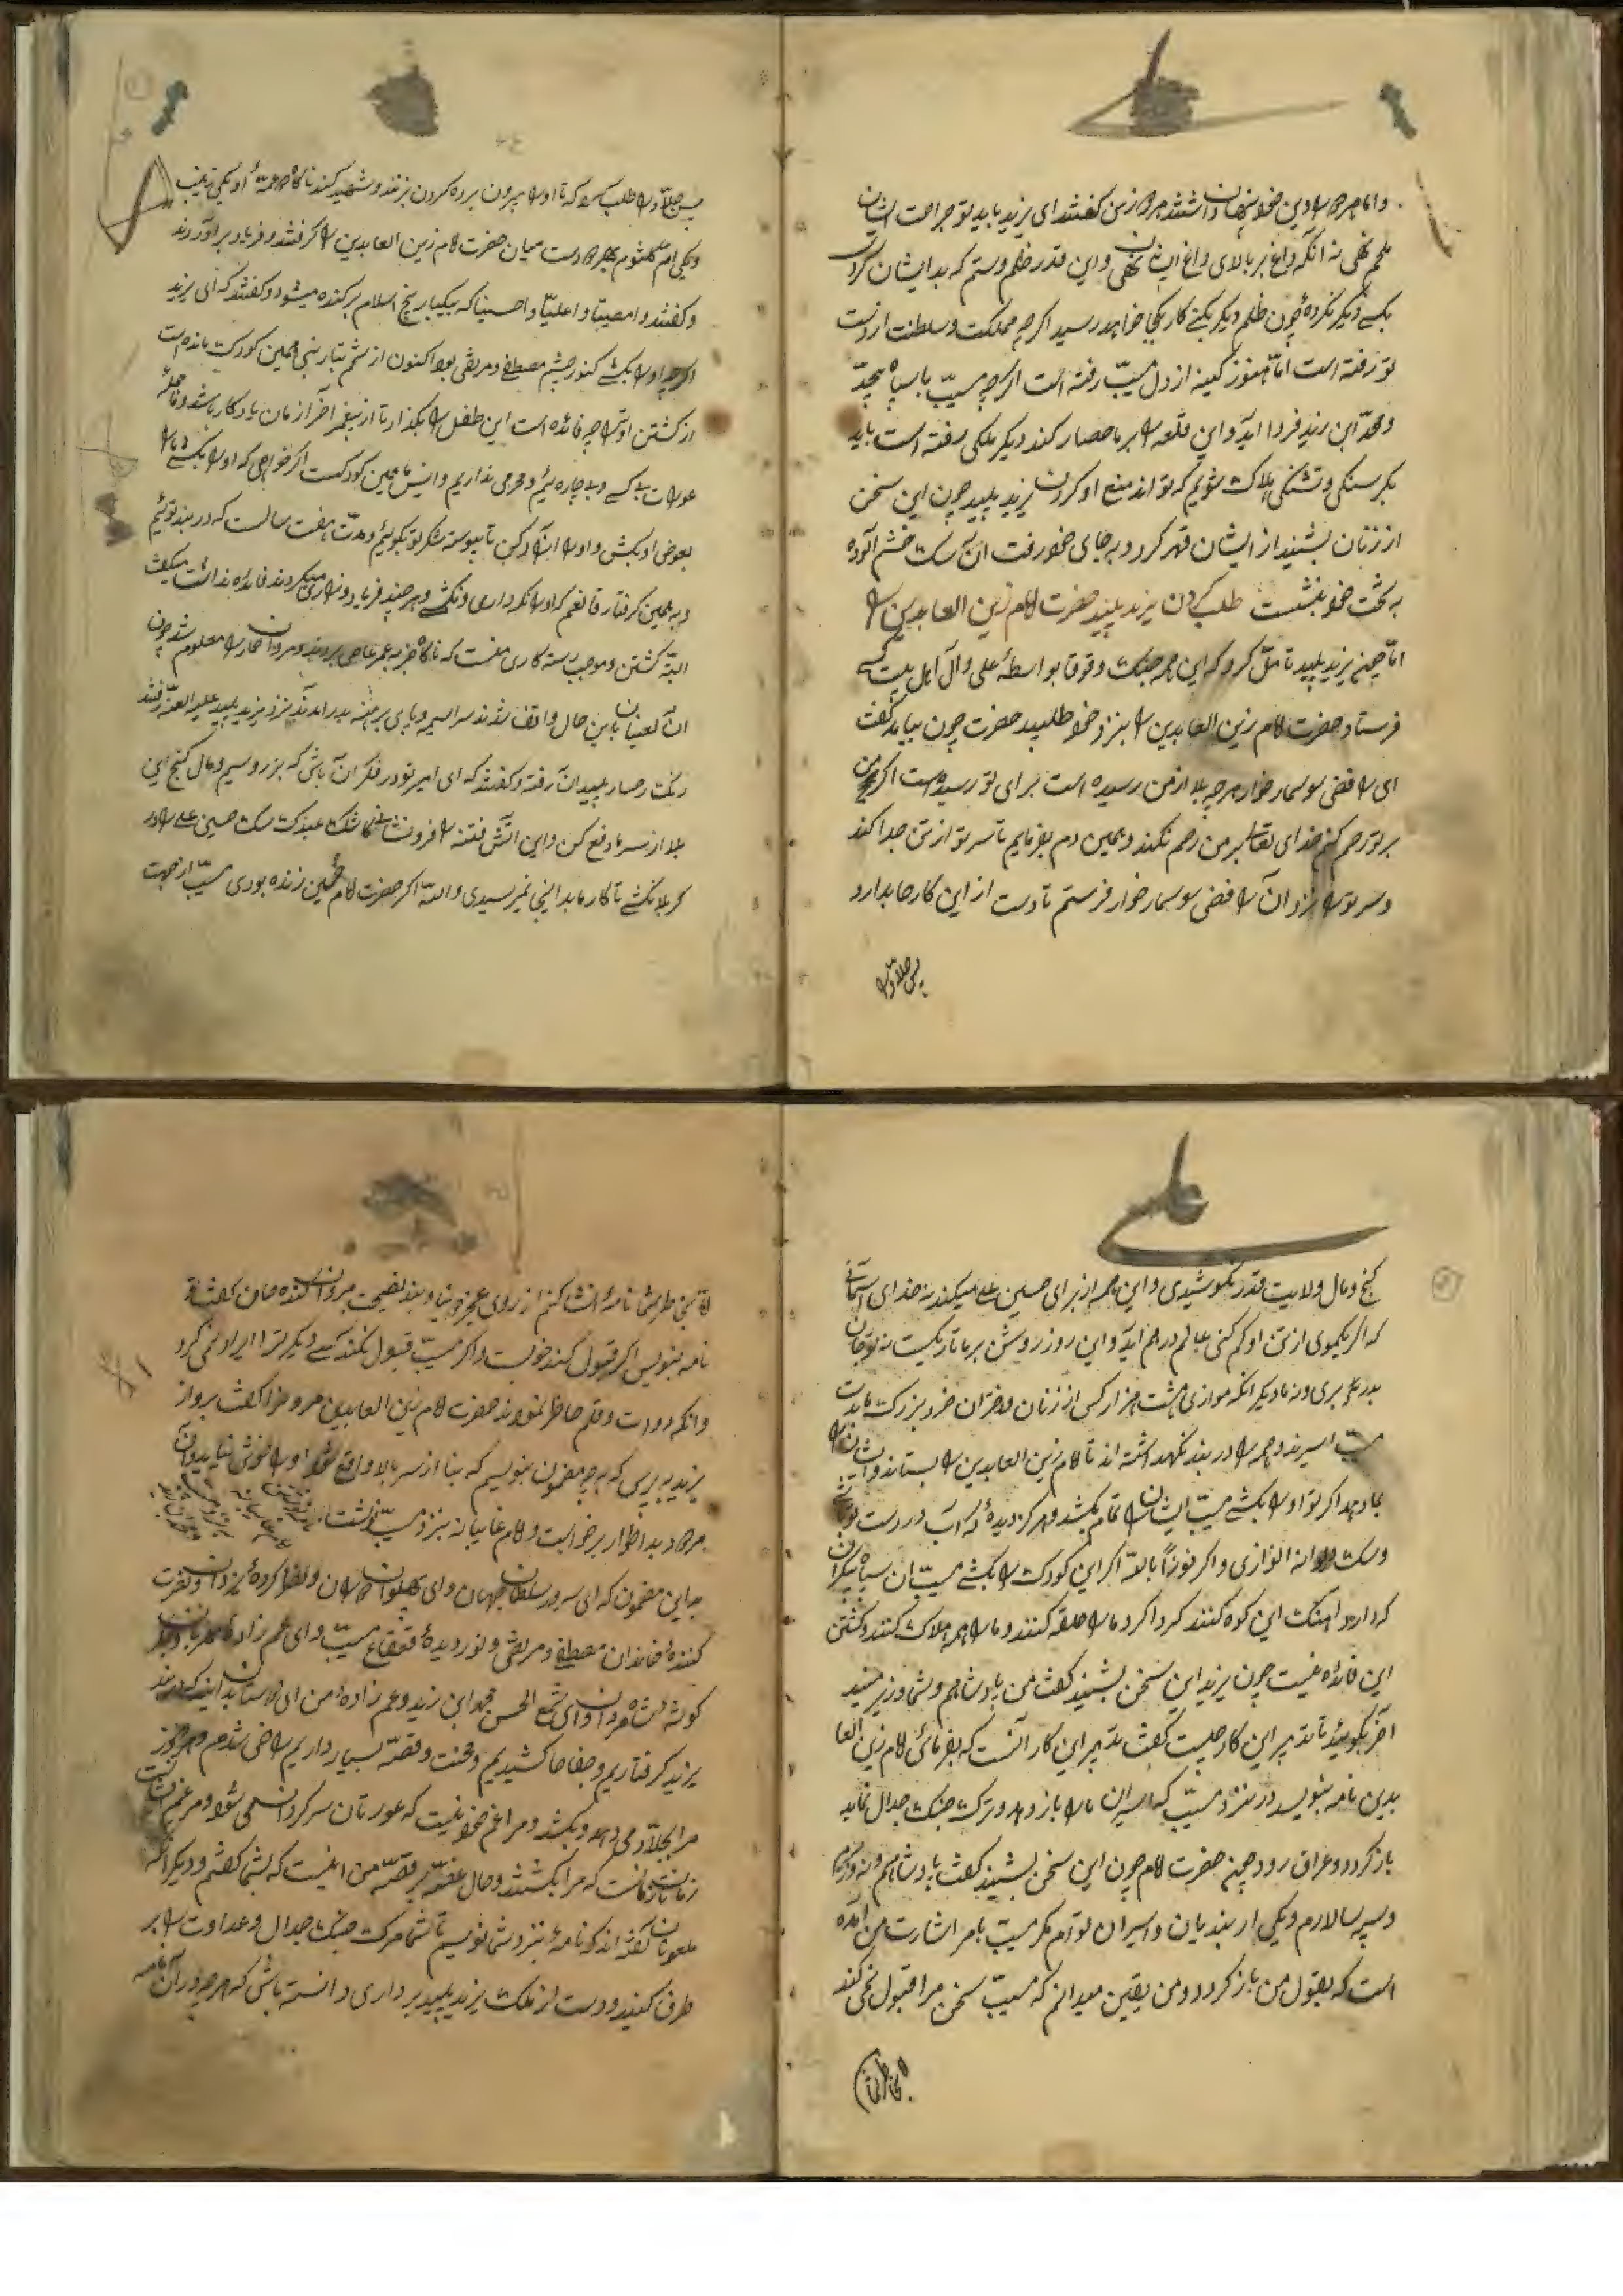 علی
و اما هر چه در دین خود پنهان داشتند مر زن گفتند ای یزید باید تو جراحت ایشان
مرهم نهی نه آنکه داغ بر بالای داغ ایشان نهی و این قدر ظلم و ستم که بدایشان کردی
بکسی دیگر نکرده چون ظلم دیگر بکنی کار بکجا خواهد رسید اگر چه مملکت و سلطنت از دست
تو رفته است اما هنوز کینه از دل مسیّب رفته است اگر چه مسیّب با سپاه بیحدّ
و محمّد ابن زید فردا آید و این قلعه را بر ما حصار کند دیگر ملکی رفته است باید
بگرسنگی و تشنگی هلاک شویم که تواند منع او کردن یزید پلید چون این سخن
از زنان بشنید از ایشان قهر کرد و به جای خود رفت آن سگ خشم آلوده
به تخت خود بنشست طلب کردن یزید پلید حضرت امام زین العابدین را
امّا چون یزید پلید تامّل کرد که این همه جنگ و غوغا بواسطهٔ علی و آل اهل بیت کسی
فرستاد حضرت امام زین العابدین را بنزد خود طلبید حضرت چون بیامد گفت
ای رافضی سوسمار خوار هر چه بلا از من رسیده است برای تو رسیده است اگر من
بر تو رحم کنم خدای تعالی بر من رحم نکند و همین دم بفرمایم تا سر تو از تن جدا کند
و سر تو را نزد آن رافضی سوسمار خوار فرستم تا دست از این کارها بدارد
پس جلاّد را
پس جلاّد را طلب کرد که تا او را بیرون برده گردن بزنند و شهید کند ناگاه دو عمهٔ او یکی زینب
و یکی ام کلثوم هر دو دست میان حضرت امام زین العابدین را گرفتند و فریاد بر آوردند
و گفتند وا مصیبتا وا علیّا وا حسینا که بیکبار بیخ اسلام بر کنده میشود و گفتند که ای یزید
اگر چه او را بکشی که نور چشم مصطفی و مرتضی بود اکنون از تخم تبار نبی همین کودک مانده است
از کشتن او ترا چه فائده است این طفل را بگذار تا از پیغمبر آخر زمان یادگار باشد و ما جملهٔ
عورات بی کس و بیچاره ئیم و محرمی نداریم و انیس ما همین کودکست اگر خواهی که او را بکشی ما را
بعوض او بکش و او را آزاد کن تا پیوسته شکر تو بگوئیم و مدّت هفت سالست که در بند توئیم
و به همین گرفتار قانعم که او را نگهداری و نکشی و هر چند فریاد و زاری میکردند فائده نداشت میگفت
البتّه کشتن و موجب رستگاری منست که ناگاه خبر به عمر عاص بردند و مروان حمار را معلوم شد چون
آن لعینان باین حال واقف شدند سراسیمه و پای برهنه بدر آمدند نزد یزید پلید علیه اللعنه رفتند
رنگ رخسار پلیدان رفته و گفتند که ای امیر تو در فکر آن باشی که بزر و سیم و مال گنج این
بلا از سر ما دفع کن و این آتش فتنه را فرو نشانی کاشکی عبدک سگ حسین علی را در
کربلا نکشتی تا کار ما بداینجا نمیرسیدی و اللّه اگر حضرت امام حسین زنده بودی مسیّب از جهت
علی
گنج و مال ولایت قدر نکوشیدی و این همه از برای حسین علی میکند نه خدای آسمانی
که اگر یکموی از تن او کم کنی عالم در هم آید و این روز روشن بر ما تاریکست نه تو جان
بدر بری و نه ما دیگر آنکه موازی هشت هزار کس از زنان و دختران خرد و بزرگ ما بدست
مسیّب اسیرند و همه را در بند نگهداشته اند تا امام زین العابدین را بستاند و ایشان را
بما دهد اگر تو او را بکشی مسیّب ایشان را تمام بکشد و هر گز دیده
و سگ را نه انوازی و اگر فوزاً باللّه اگر این کودک را بکشی مسیّب آن سپاه بیکران
که دارد آهنگ این کوه کنند گرداگرد ما را حلقه کنند و ما را همه هلاک کنند و کشتن
این فائده نیست چون یزید این سخن بشنید گفت من پادشاهم و شما وزیر منید
آخر بگوئید تا تدبیر این کار چیست گفت تدبیر این کار آنست که بفرمائی امام زین العا
بدین نامه بنویسد در نزد مسیّب که اسیران ما را باز دهد و ترک جنگ و جدال نماید
باز گردد و عراق رود چون حضرت امام چون این سخن بشنید گفت پادشاهم و نه وزیرم
و سپه سالارم و یکی از بندیان و اسیران توام مگر مسیّب بامر اشارت من آمده
است که بقول من باز گردد و من یقین میدانم که مسیّب سخن مرا قبول نمی کند
امّا بخاطر شما
امّا بخاطر شما نامهٔ انشا کنم از روی عجز و بنیاد پند نصیحت مروان کنده جان گفت تو
نامه بنویس اگر قبول کند خوبست و اگر مسیّب قبول نکند کسی دیگر ترا ایرادی نگیرد
وانگه دوات و قلم حاظر نمودند حضرت امام زین العابدین مروخرا گفت برو از
یزید بپرس که به چه مضمون بنویسم که بنا از سر بالا واقع شود او را خوش نیاید و آن
مردود بداظوار برخواست و امام غایبانه بنزد مسیّب نوشت
بداین مضمون که ای سرور سلطان جهان و ای پهلوان و نظر کردهٔ یزدان و نصرت
کنندهٔ خاندان مصطفی و مرتضی و نور دیدهٔ قعقاع مسیّب و ای عم زاده مهربان و جگر
گوشهٔ شاه مردان و ای شمع الحسن محمد ابن زید و عم زادهٔ من ای دوستان بدانید که در بند
یزید گرفتاریم و جفاها کشیدیم و محنت و قصّه بسیار داریم راضی شدم هر روز
مرا بجلاّد می دهد و بکشد و مرا غم خود نیست که عورتان سرگردان می شوند و مر غم
زنان ز آنست که مرا بکشند و حال غصّه پر قصّه من اینست که بشما گفتم و دیگر آنکه
ملعونان گفته اند که نامهٔ بنزد شما نویسم تا شما ترک جنگ جدال و عداوت را بر
طرف کنید و دست از ملک یزید پلید برداری دانسته باشی که هر چه در آن نامه